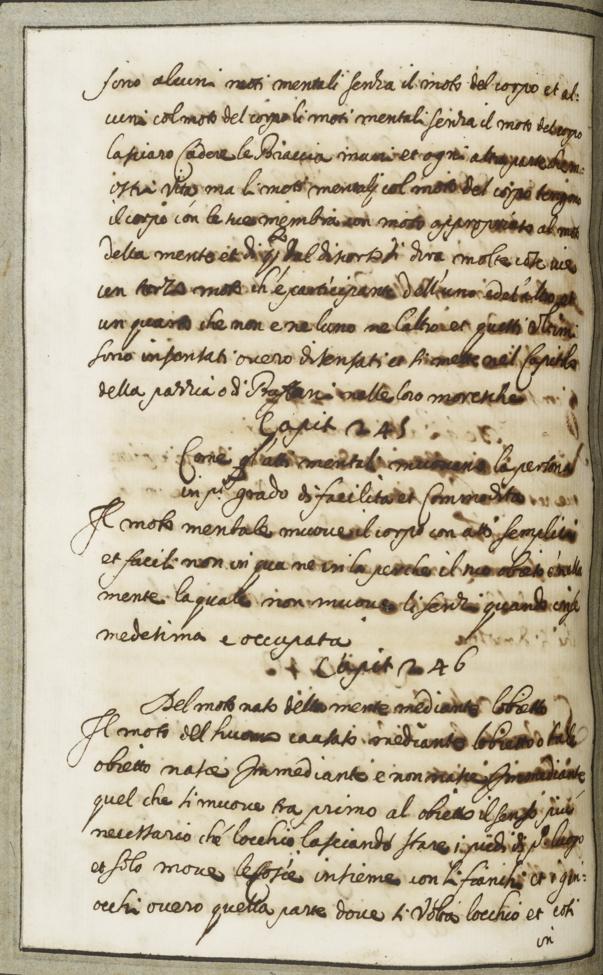 sono alcuni moti mentali senza il moto del corpo et al:
cuni col moto del corpo li moti mentali senza il moto del corpo
lasciaro Cadere le Braccia mani et ogni altra parte che m:
ostri vita ma li moti mentali col moto del corpo tengono
il corpo con le sue membra con moto appropriato al moto
della mente et di q.to tal discorso si dira molte cose
un terzo moto ch'è participante dell'uno e del'altro et
un quarto che non e ne l'uno ne l'altro et questi ultimi
sono insensati overo disensati et si mette nel Capitolo
della pazzia o di Buffoni nelle loro moresche
Capit 245
Come gl'atti mentali muovano la persona
in p.o grado di facilita et Commodita
Il moto mentale muove il corpo con atti semplici
et facili non in qua ne in la perche il suo obietto è nella
mente la quale non muove li sensi quando in se
medesima e occupata
Capit 246
Del moto nato della mente mediante l'obietto
Il moto dell'huomo causato mediante l'obietto o tale
obietto nasce Immediante e non nasce Immediante
quel che si muove tra primo al obietto il senso più
necessario che l'occhio lasciando stare i piedi di p.o luogo
et solo move le Coscie insieme con li fianchi et i gin:
occhi overo quella parte dove si volta l'occhio et cosi
in